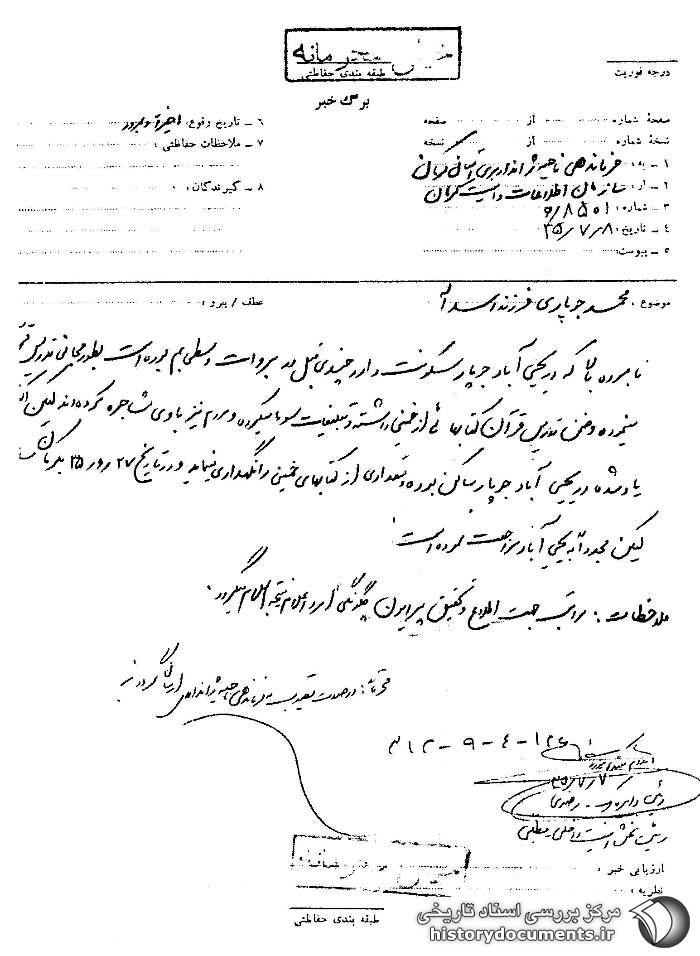 خیلی محرمانه
طبقه بندی حفاظتی
درجه فوریت
برگ خبر
صفحهٔ شماره از صفحه
نسخهٔ شماره از نسخه
۱ ـ به: فرماندهی ناحیه ژاندارمری استان کرمان
۲ ـ از: سازمان اطلاعات و امنیت کرمان
۳ ـ شماره: ۸۵۰۱/ه
۴ ـ تاریخ: ۳۵/۷/۸
۵ ـ پیوست:
۶ ـ تاریخ وقوع: اخیراً
۷ ـ ملاحظات حفاظتی:
۸ ـ گیرندگان:
موضوع: محمد جوپاری فرزند اسداله
عطف / پیرو:
نامبرده بالا که در یحیی آباد جوپار سکونت دارد چندی قبل در بروات وسطی بم بوده است بطور مجانی تدریس
مینموده و ضمن تدریس قرآن کتابهائی از خمینی داشته و تبلیغات سوء مینموده و مردم نیز با وی مشاجره کرده اند لیکن
یاد شده در یحیی آباد جوپار ساکن بوده و تعدادی از کتابهای خمینی را نگهداری مینماید و در تاریخ
لیکن مجدداً به یحیی آباد مراجعت نموده است.
ملاحظات: مراتب جهت اطلاع و تحقیق پیرامون چگونگی امر و اعلام نتیجه اعلام میگردد.
محترماً: در صورت تصویب به فرماندهی ناحیه ژاندارمری ارسال گردد
۳۱۲-۹-۴-۱۲۶
۳۵/۷/۷
رئیس بخش امنیت داخلی. مطلبی
ارزیابی خبر:
نظریه:
طبقه بندی حفاظتی
مرکز بررسی اسناد تاریخی
historydocuments.ir